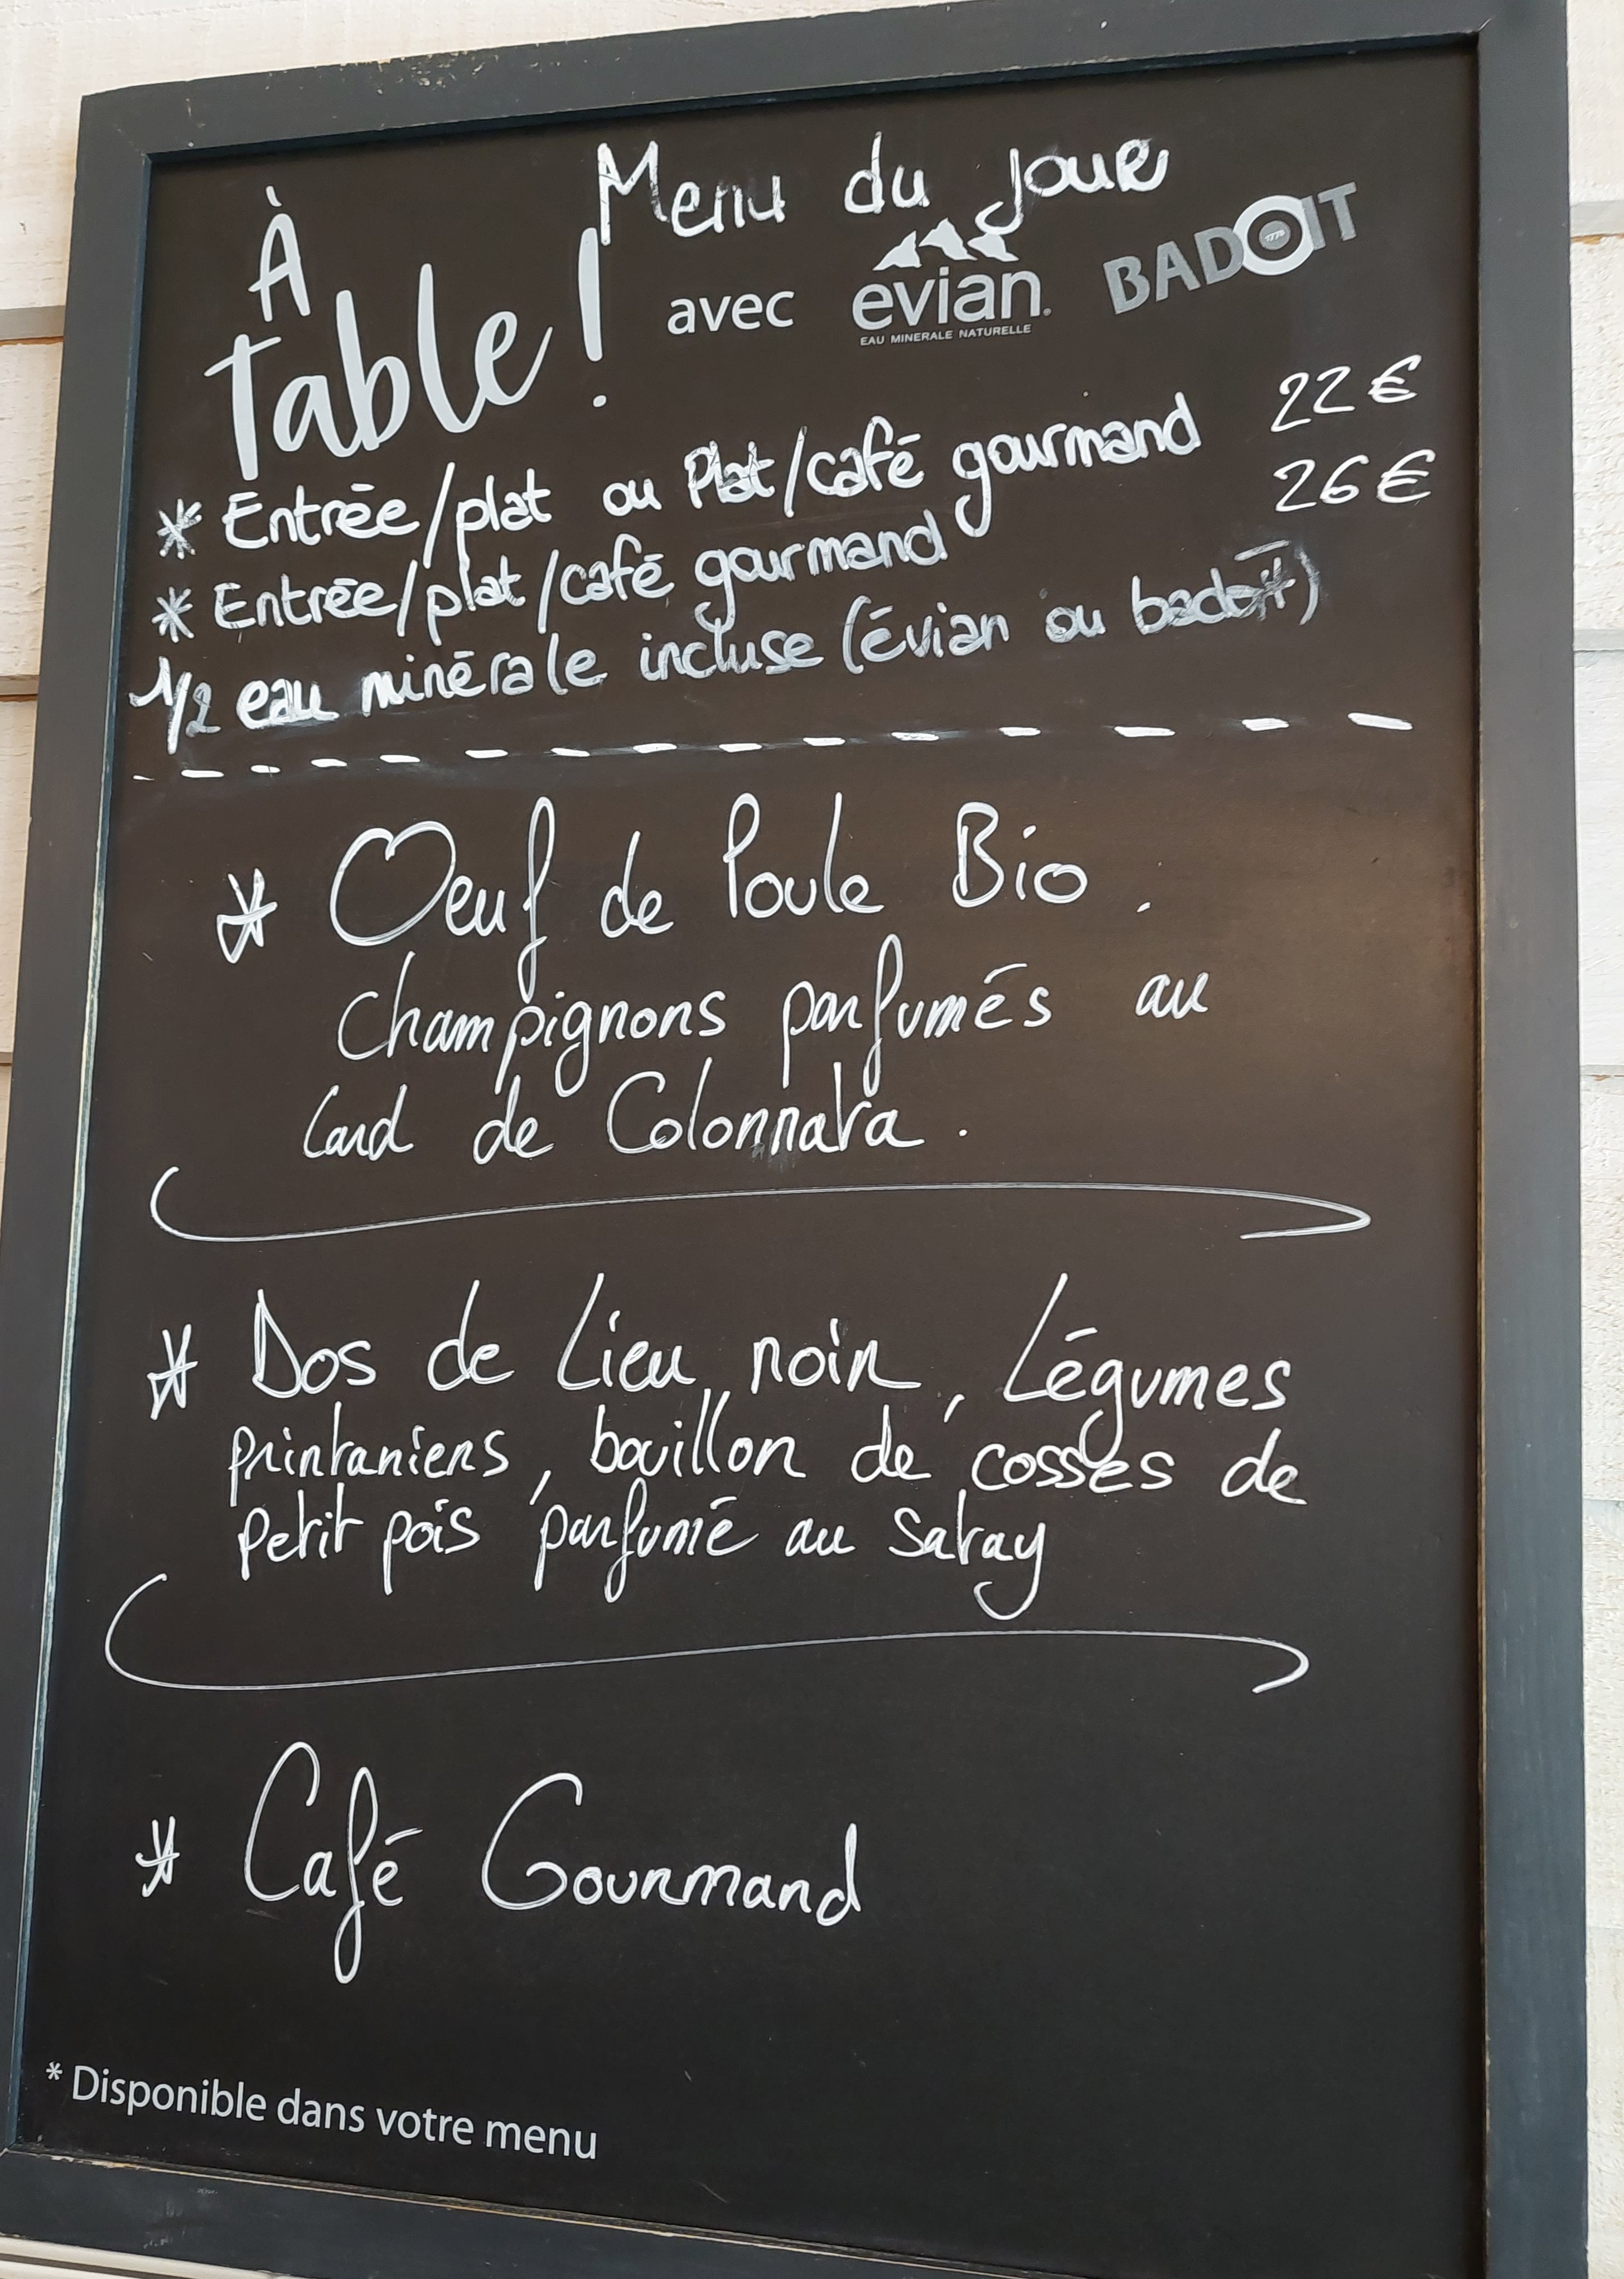 Menu du jour
À
Table !
avec evian. BADOIT
EAU MINERALE NATURELLE
* Entrée/plat ou Plat/café gourmand 22€
* Entrée/plat/café gourmand 26€
1/2 eau minérale incluse (évian ou badoit)
* Oeuf de Poule Bio.
champignons parfumés au
lard de Colonnata.
* Dos de Lieu noir, Légumes
printaniers, bouillon de cosses de
petit pois parfumé au Satay
* Café Gourmand
* Disponible dans votre menu